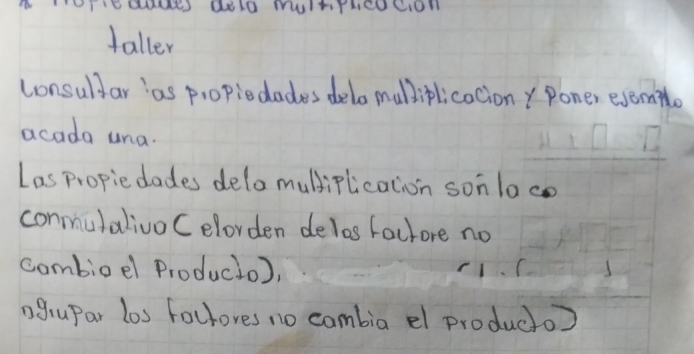 Propiedades dela multiplicacion
taller
consultar las propiedades dela multiplicacion y poner ejemplo
acada una.
Las propiedades dela multiplicación son la co
conmutativa (elorden delos factore no
cambia el producto),
agrupar los factores no cambia el producto)